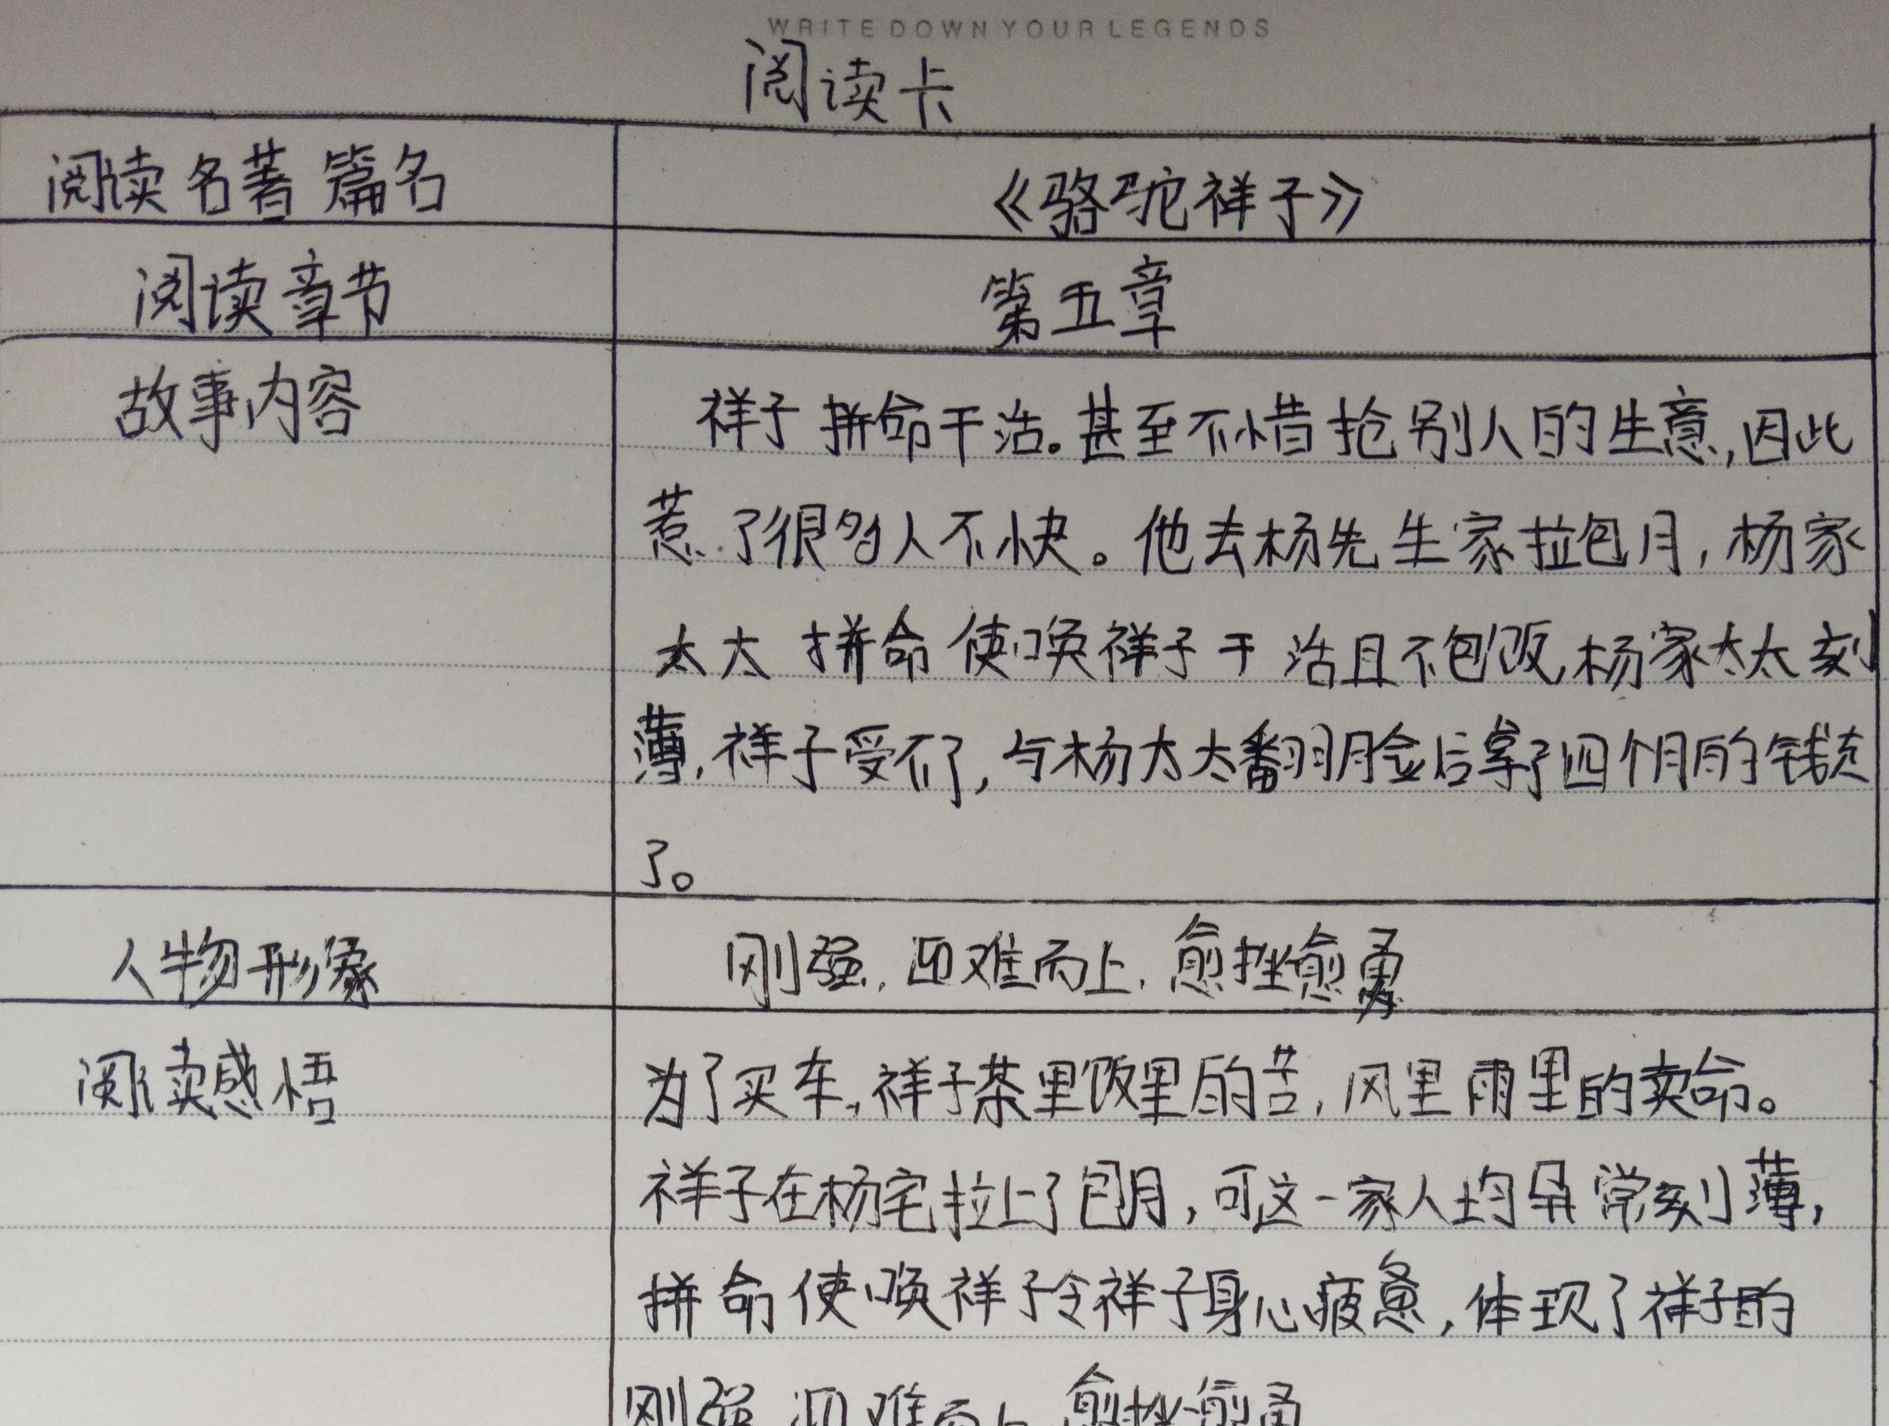 WRITE DOWN YOUR LEGENDS
阅读卡
阅读名著篇名 《骆驼祥子》
阅读章节 第五章
故事内容 祥子拼命干活。甚至不惜抢别人的生意,因此
惹了很多人不快。他去杨先生家拉包月,杨家
太太拼命使唤祥子干活且不包饭,杨家太太刻
薄,祥子受不了,与杨太太翻脸后拿了四个月的钱走
了。
人物形象 刚强,迎难而上,愈挫愈勇
阅读感悟 为了买车,祥子茶里饭里的苦,风里雨里的卖命。
祥子在杨宅拉上了包月,可这一家人均异常刻薄,
拼命使唤祥子令祥子身心疲惫,体现了祥子的
刚强 迎难而上 愈挫愈勇